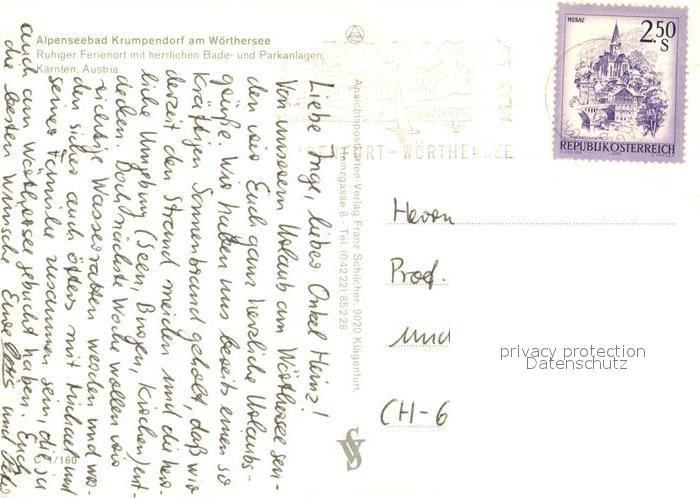 Alpenseebad Krumpendorf am Wörthersee
Ruhiger Ferienort mit herrlichen Bade- und Parkanlagen
Kärnten, Austria
Liebe Inge, lieber Onkel Heinz!
Von unserem Urlaub am Wörthersee sen-
den wir Euch ganz herzliche Urlaubs-
grüße. Wir haben uns bereits einen so
kräftigen Sonnenbrand geholt, daß wir
derzeit den Strand meiden und die herr-
liche Umgebung (Seen, Burgen, Kirchen) ent-
decken. Doch nächste Woche wollen wir
richtige Wasserratten werden und wer-
den sicher auch öfters mit Michael und
seiner Familie zusammen sein, die ja
auch am Wörthersee gebucht haben. Euch
die besten Wünsche Eure und
C 1/160
Ansichtspostkarten-Verlag Franz Schilcher, 9020 Klagenfurt,
Heinzgasse 8 - Tel. (04222) 85228
VS
MURAU
2.50
S
REPUBLIK ÖSTERREICH
WÖRTHERSEE
Herrn
Prof.
CH-6
privacy protection
Datenschutz